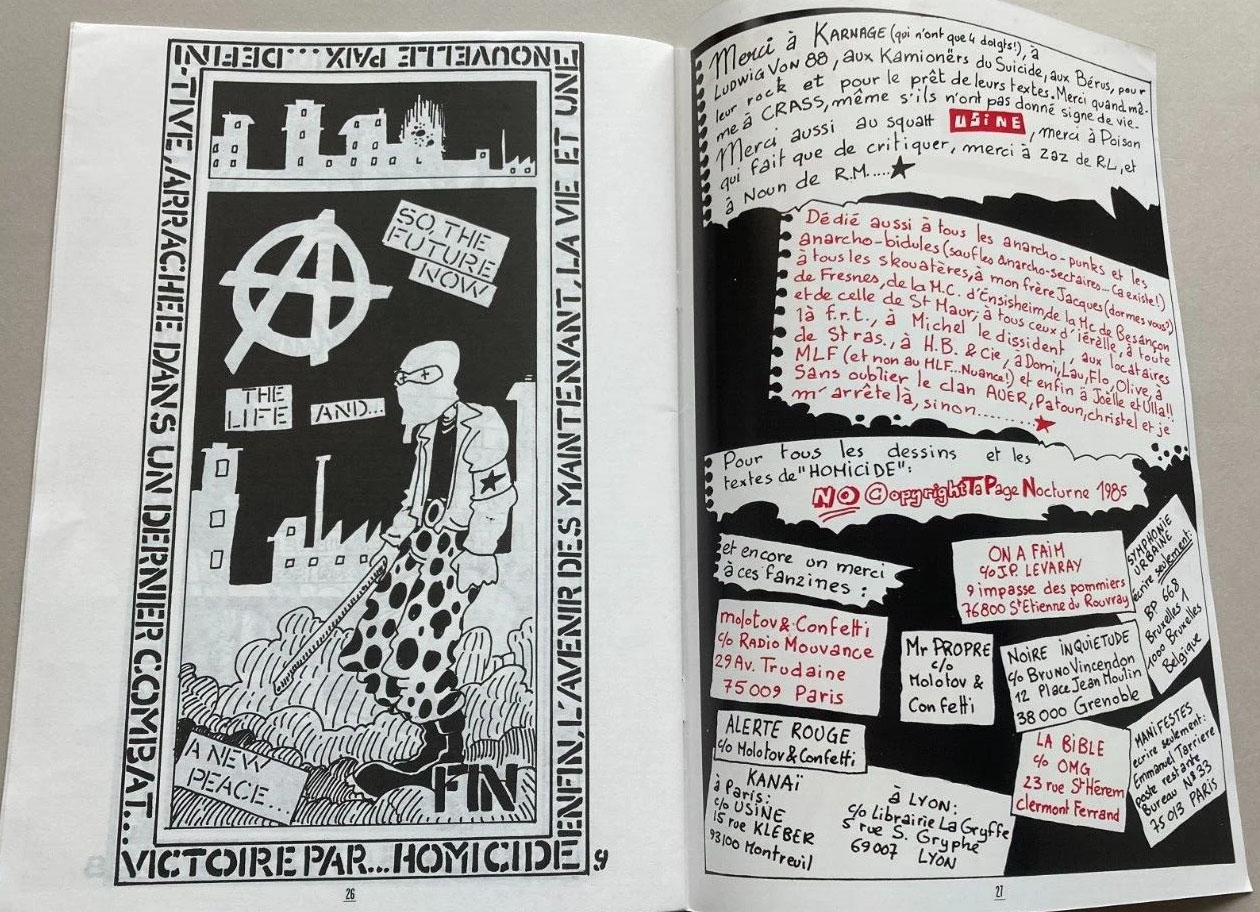 ENFIN, L'AVENIR DES MAINTENANT, LA VIE ET UNE
NOUVELLE PAIX.... DEFINI-
-TIVE, ARRACHEE DANS UN DERNIER COMBAT...
VICTOIRE PAR... HOMICIDE
SO, THE
FUTURE
NOW
THE
LIFE
AND...
A NEW
PEACE...
FIN
26
Merci à KARNAGE (qui n'ont que 4 doigts!), à
LUDWIG VON 88, aux Kamionërs du Suicide, aux Bérus, pour
leur rock et pour le prêt de leurs textes. Merci quand mê-
me à CRASS, même s'ils n'ont pas donné signe de vie-
Merci aussi au squatt USINE, merci à Poison
qui fait que de critiquer, merci à Zaz de RL, et
à Noun de R.M.....
Dédié aussi à tous les anarcho-punks et les
anarcho-bidules (sauf les anarcho-sectaires... Ca existe!)
à tous les skouatères, à mon frère Jacques (dormes vous?)
de Fresnes, de la M.C. d'Ensisheim, de la Mc de Besançon
et de celle de St Maur; à tous ceux d'iérelle, à toute
là f.r.t., à Michel le dissident, aux locataires
de Stras., à H.B. & Cie, à Domi, Lau, Flo, Olive, à
MLF (et non au MLF...Nuance!) et enfin à Joëlle et Ulla!!
Sans oublier le clan AUER, Patoun, christel et je
m'arrête là, sinon........
Pour tous les dessins et les
textes de "HOMICIDE":
NO Copyright TaPage Nocturne 1985
et encore un merci
à ces fanzines :
ON A FAIM
c/o J.P. LEVARAY
9 impasse des pommiers
76800 St Etienne du Rouvray
SYMPHONIE
URBAINE
écrire seulement:
BP 668
Bruxelles 1
1000 Bruxelles
Belgique
molotov & Confetti
c/o RADIO Mouvance
29 Av. Trudaine
75009 Paris
Mr PROPRE
c/o
Molotov &
Confetti
NOIRE INQUIETUDE
c/o Bruno Vincendon
12 Place Jean Moulin
38000 Grenoble
ALERTE ROUGE
c/o Molotov & Confetti
LA BIBLE
c/o OMG
23 rue St Hérem
clermont Ferrand
MANIFESTES
écrire seulement:
Emmanuel Tarriere
poste restante
Bureau N° 33
75013 PARIS
KANAÏ
à Paris:
c/o USINE
15 rue KLEBER
93100 Montreuil
à LYON:
c/o Librairie La Gryffe
5 rue S. Gryphe
69007 LYON
27